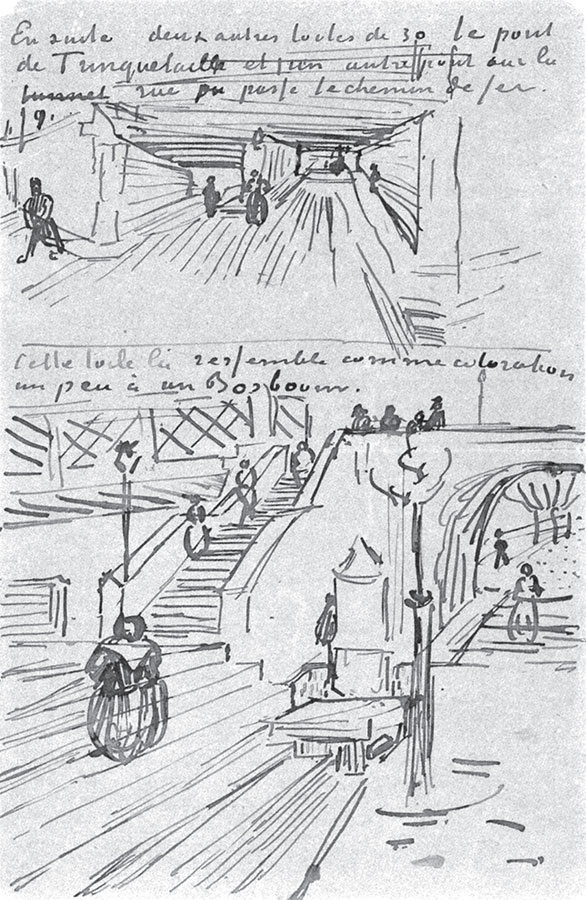 En suite deux autres toiles de 30 le pont
de Trinquetaille et un autre pont sur la
rue ou passe le chemin de fer.
Cette toile là ressemble comme coloration
un peu à un Bosboom.